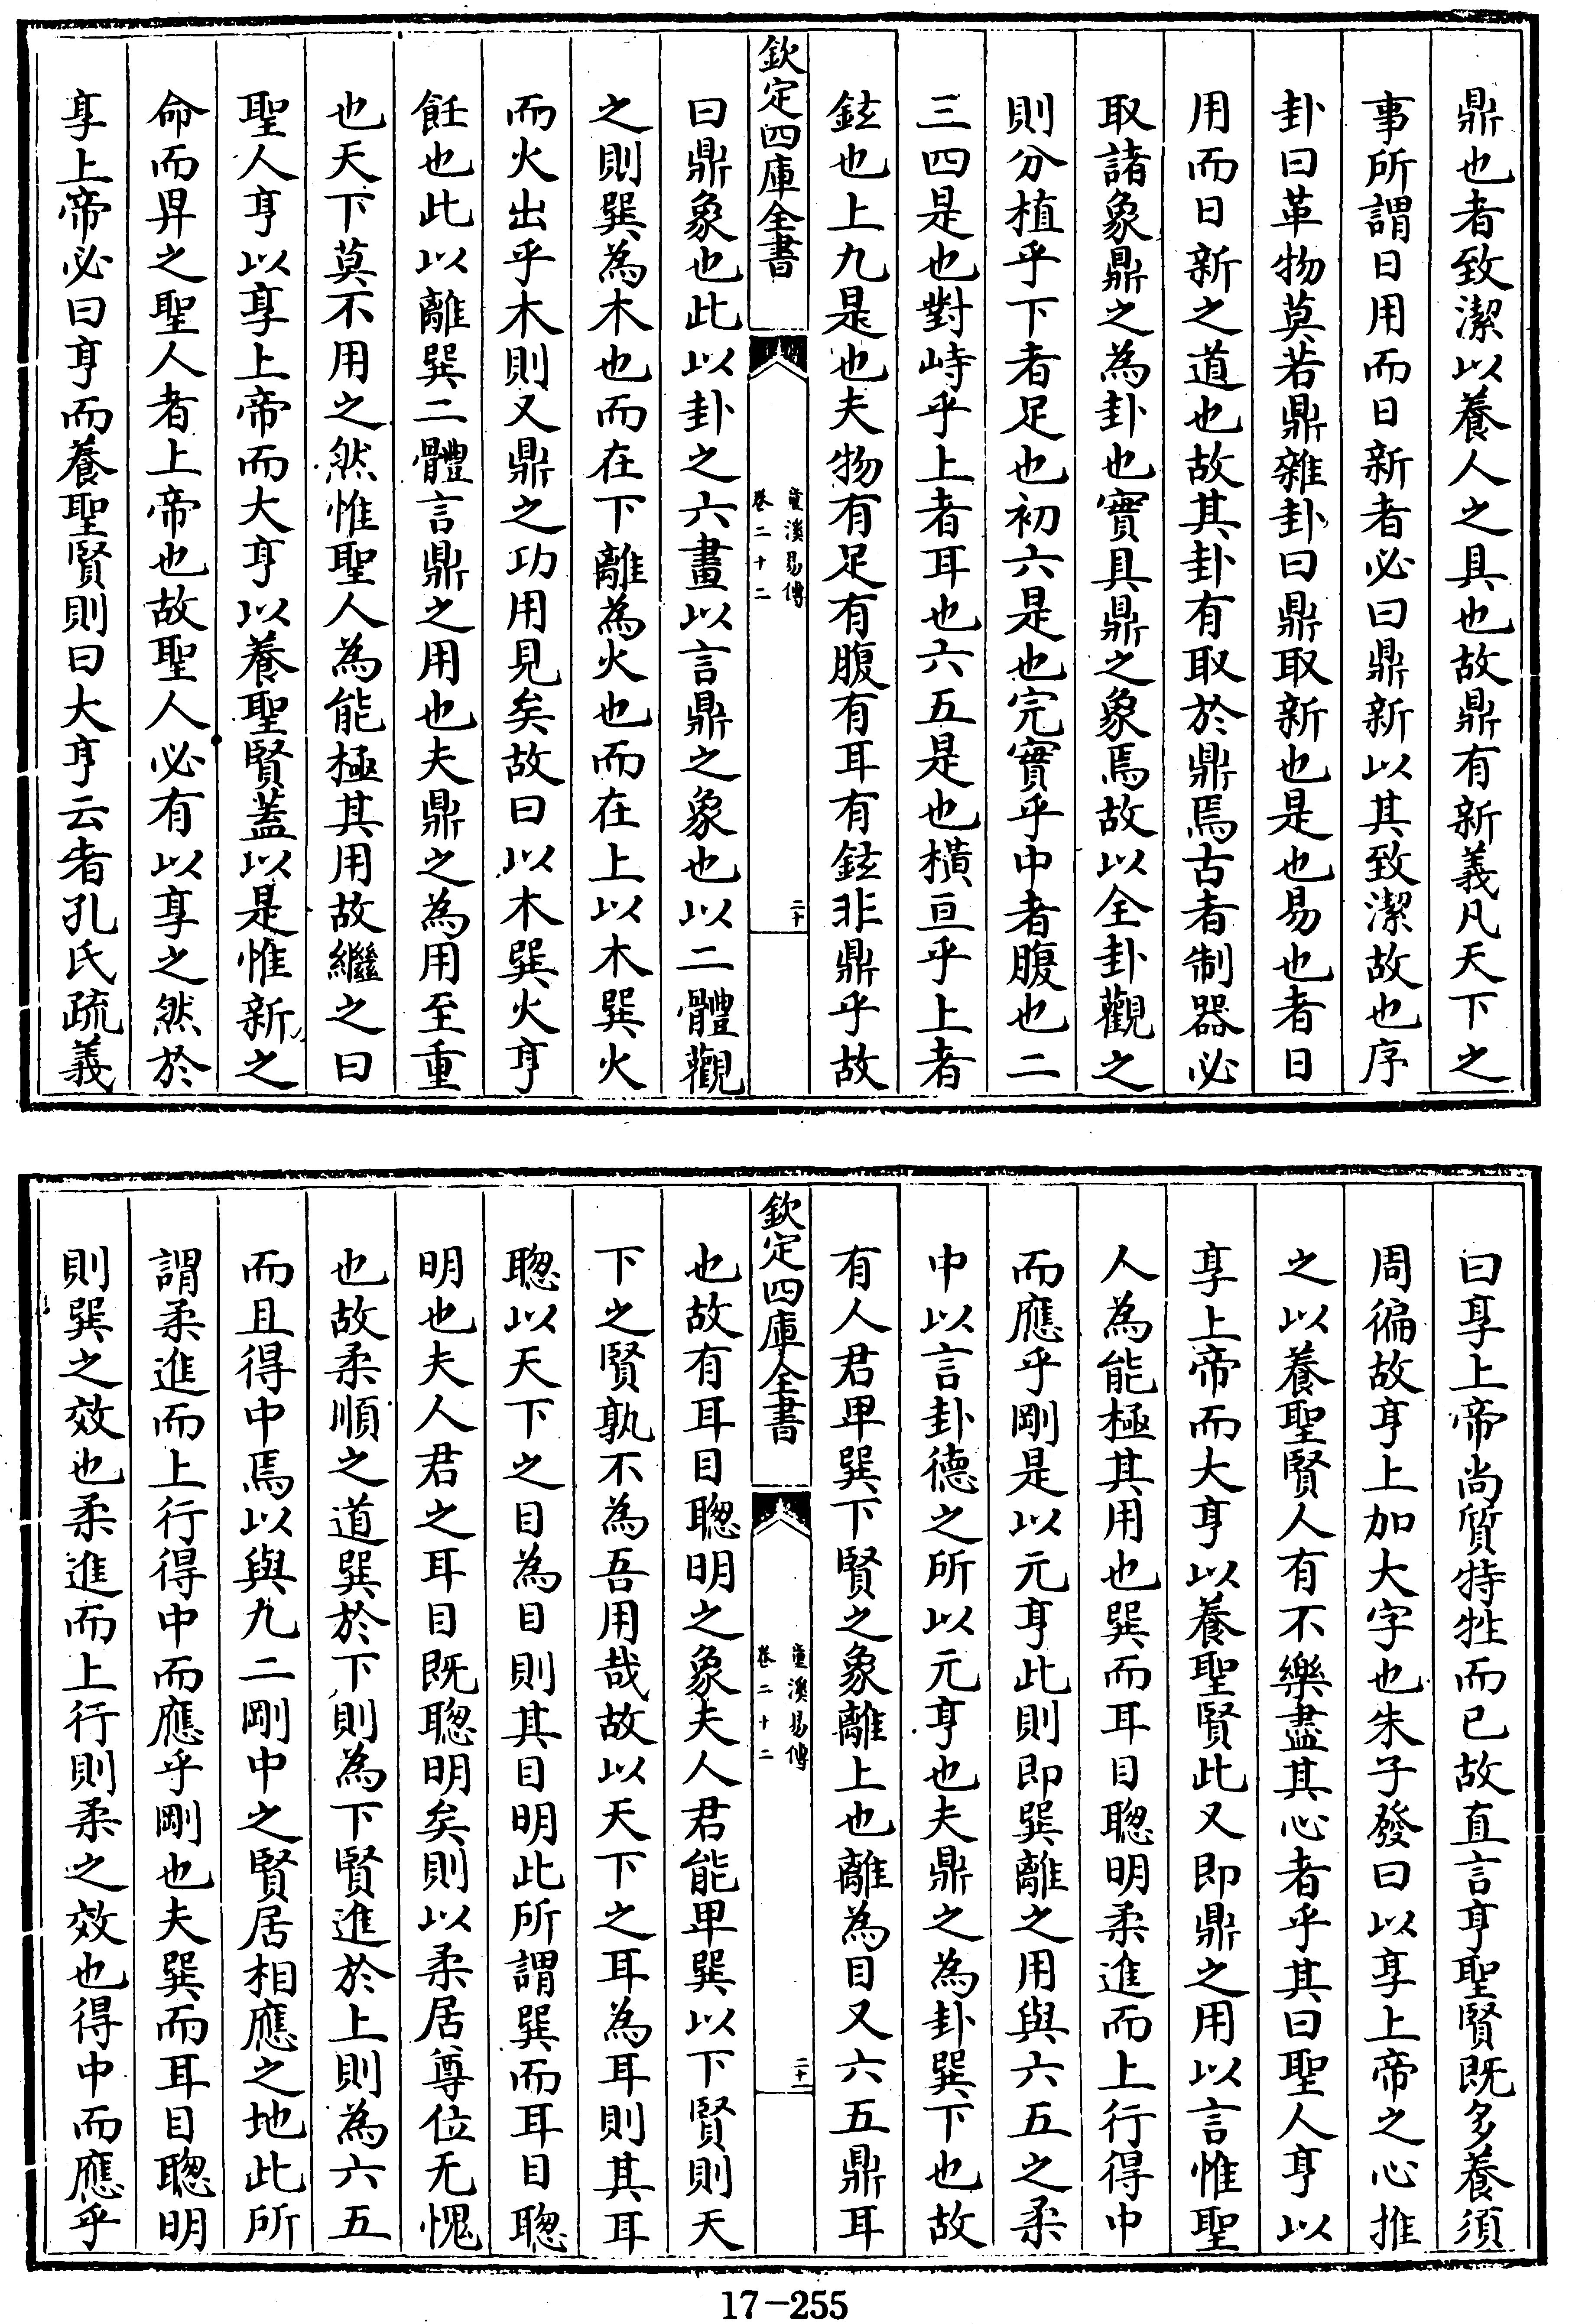 鼎也者致潔以養人之具也故鼎有新義凡天下之
事所謂日用而日新者必曰鼎新以其致潔故也序
卦曰革物莫若鼎雜卦曰鼎取新也是也易也者日
用而日新之道也故其卦有取於鼎焉古者制器必
取諸象鼎之為卦也實具鼎之象焉故以全卦觀之
則分植乎下者足也初六是也完實乎中者腹也二
三四是也對峙乎上者耳也六五是也橫亘乎上者
鉉也上九是也夫物有足有腹有耳有鉉非鼎乎故
欽定四庫全書
童溪易傳
卷二十二
二十
曰鼎象也此以卦之六畫以言鼎之象也以二體觀
之則巽為木也而在下離為火也而在上以木巽火
而火出乎木則又鼎之功用見矣故曰以木巽火亨
飪也此以離巽二體言鼎之用也夫鼎之為用至重
也天下莫不用之然惟聖人為能極其用故繼之曰
聖人亨以享上帝而大亨以養聖賢蓋以是惟新之
命而畀之聖人者上帝也故聖人必有以享之然於
享上帝必曰亨而養聖賢則曰大亨云者孔氏疏義
曰享上帝尚質特牲而已故直言亨聖賢既多養須
周徧故亨上加大字也朱子發曰以享上帝之心推
之以養聖賢人有不樂盡其心者乎其曰聖人亨以
享上帝而大亨以養聖賢此又即鼎之用以言惟聖
人為能極其用也巽而耳目聰明柔進而上行得中
而應乎剛是以元亨此則即巽離之用與六五之柔
中以言卦德之所以元亨也夫鼎之為卦巽下也故
有人君卑巽下賢之象離上也離為目又六五鼎耳
欽定四庫全書
童溪易傳
卷二十二
二十一
也故有耳目聰明之象夫人君能卑巽以下賢則天
下之賢孰不為吾用哉故以天下之耳為耳則其耳
聰以天下之目為目則其目明此所謂巽而耳目聰
明也夫人君之耳目既聰明矣則以柔居尊位无愧
也故柔順之道巽於下則為下賢進於上則為六五
而且得中焉以與九二剛中之賢居相應之地此所
謂柔進而上行得中而應乎剛也夫巽而耳目聰明
則巽之效也柔進而上行則柔之效也得中而應乎
17-255